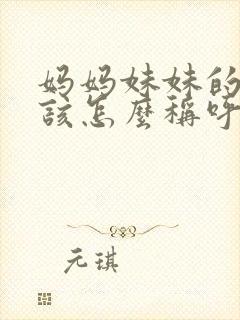 妈妈妹妹的
该怎麼稱呼
元琪